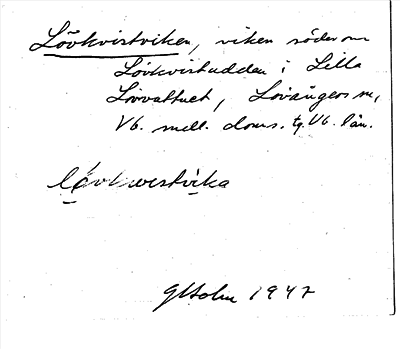 Lövkvistviken, viken söder om
Lövkvistudden i Lilla
Lövvattnet, Lövångers sn,
Vb. mell. doms. tg. Vb. län.
lövkvestvika
GHolm 1947